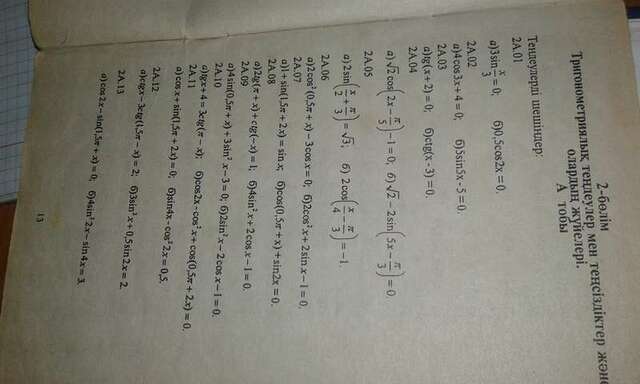 2-бөлім
Тригонометриялық теңдеулер мен теңсіздіктер және
олардың жүйелері.
А тобы
Теңдеулерді шешіңдер:
2А.01
а)3sin x/3 = 0; б)0,5cos2x = 0.
2А.02
а)4cos3x + 4 = 0; б)5sin5x - 5 = 0.
2А.03
а)tg(x + 2) = 0; б)ctg(x - 3) = 0.
2А.04
а) √2 cos(2x − π/5) − 1 = 0; б) √2 − 2sin(5x − π/3) = 0.
2А.05
а) 2sin(x/2 + π/3) = √3; б) 2cos(x/4 − π/3) = −1.
2А.06
а)2cos²(0,5π + x) − 3cos x = 0; б)2cos²x + 2sin x − 1 = 0.
2А.07
а)1 + sin(1,5π + 2x) = sin x; б)cos(0,5π + x) + sin2x = 0.
2А.08
а)2tg(π + x) + ctg(−x) = 1; б)4sin²x + 2cos x − 1 = 0.
2А.09
а)4sin(0,5π + x) + 3sin²x − 3 = 0; б)2sin²x − 2cos x − 1 = 0.
2А.10
а)tgx + 4 = 3ctg(π − x); б)cos2x - cos²x + cos(0,5π + 2x) = 0.
2А.11
а)cos x + sin(1,5π + 2x) = 0; б)sin4x - cos²2x = 0,5.
2А.12
а)ctgx − 3ctg(1,5π − x) = 2; б)3sin²x + 0,5sin2x = 2.
2А.13
а)cos2x − sin(1,5π + x) = 0; б)4sin²2x − sin4x = 3.
13